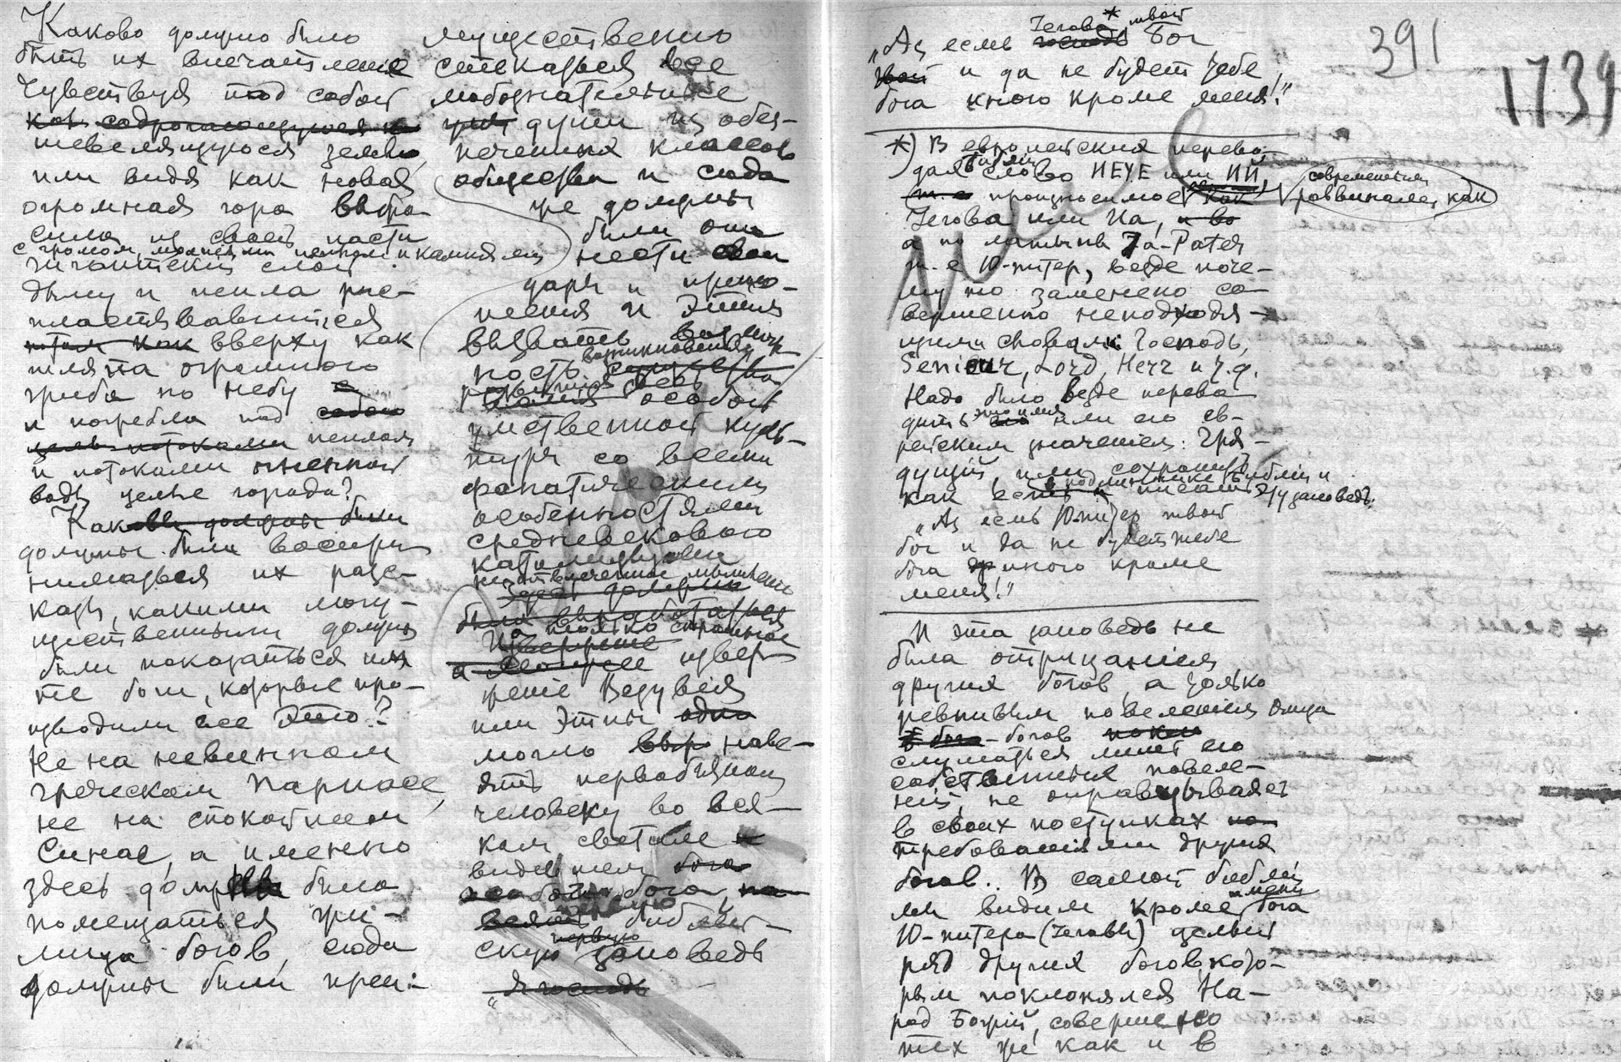 Каково должно было
быть их впечатление
Чувствуя под собой
как содрогающуюся и
шевелящуюся землю,
или видя как новая
огромная гора выбро
сила из своей пасти
с громом, молниями пеплом и камнями
гигантский слой
дыму и пепла рас-
пластававшийся
вверху как
шляпа огромного
гриба по небу
и погребла под собою
потоками пеплом
и потоками огненной
воды целые города?
Каковы должны были
должны были воспри
ниматься их расс-
казы, какими могу-
щественными должны
были показаться им
те боги, которые про-
изводили все это?
Не на невинном
греческом Парнасе,
не на спокойном
Синае, а именно
здесь должно было
помещаться жи-
лища богов, сюда
должны были преи-
мущественно
стекаться все
любознательные
души из обез-
печенных классов
общества и сюда
же должны
были они
нести свои
дары и прино-
шения и Этим
вызвать воз мож
ность возникновения
особой
умственной куль-
туры со всеми
фанатическими
особенностями
средневекового
католицизма
Здесь должны
были выработаться
только страшное
извер
жение Везувия
или Этны одно
могло наве-
ять первобытному
человеку во вся-
ком светиле
видевшему бога
бога,
библей-
скую первую заповедь
„Я господь
„Аз есмь Иегова* твой Бог
и да не будет тебе
бога иного кроме меня!"
391
1739
*) В европейских перево-
дах библии слово ИЕУЕ или ИЙ,
произносимое современными раввинами как
Иегова или Иа,
а по латыни Ja-Pater
т. е Ю-питер, везде поче-
му то заменено со-
вершенно неподходя-
щими словами: Господь,
Seniour, Lord, Herr и т.д.
Надо было везде перево
дить это имя или его ев-
рейским значением: Гря-
дущий, или сохранить
как в подлиннике Библии и
писать эту заповедь:
„Аз есмь Юпитер твой
бог и да не будет тебе
бога иного кроме
меня!"
И эта заповедь не
была отрицанием
других богов, а только
ревнивым повелением Отца
богов
слушаться лишь его
собственных повеле-
ний, не оправдываясь
в своих поступках
требованиями других
богов.. В самой библии
мы видим кроме имени бога
Ю-питера (Иеговы) целый
ряд других богов, кото-
рым поклонялся На-
род Божий, совершенно
тех же как и в